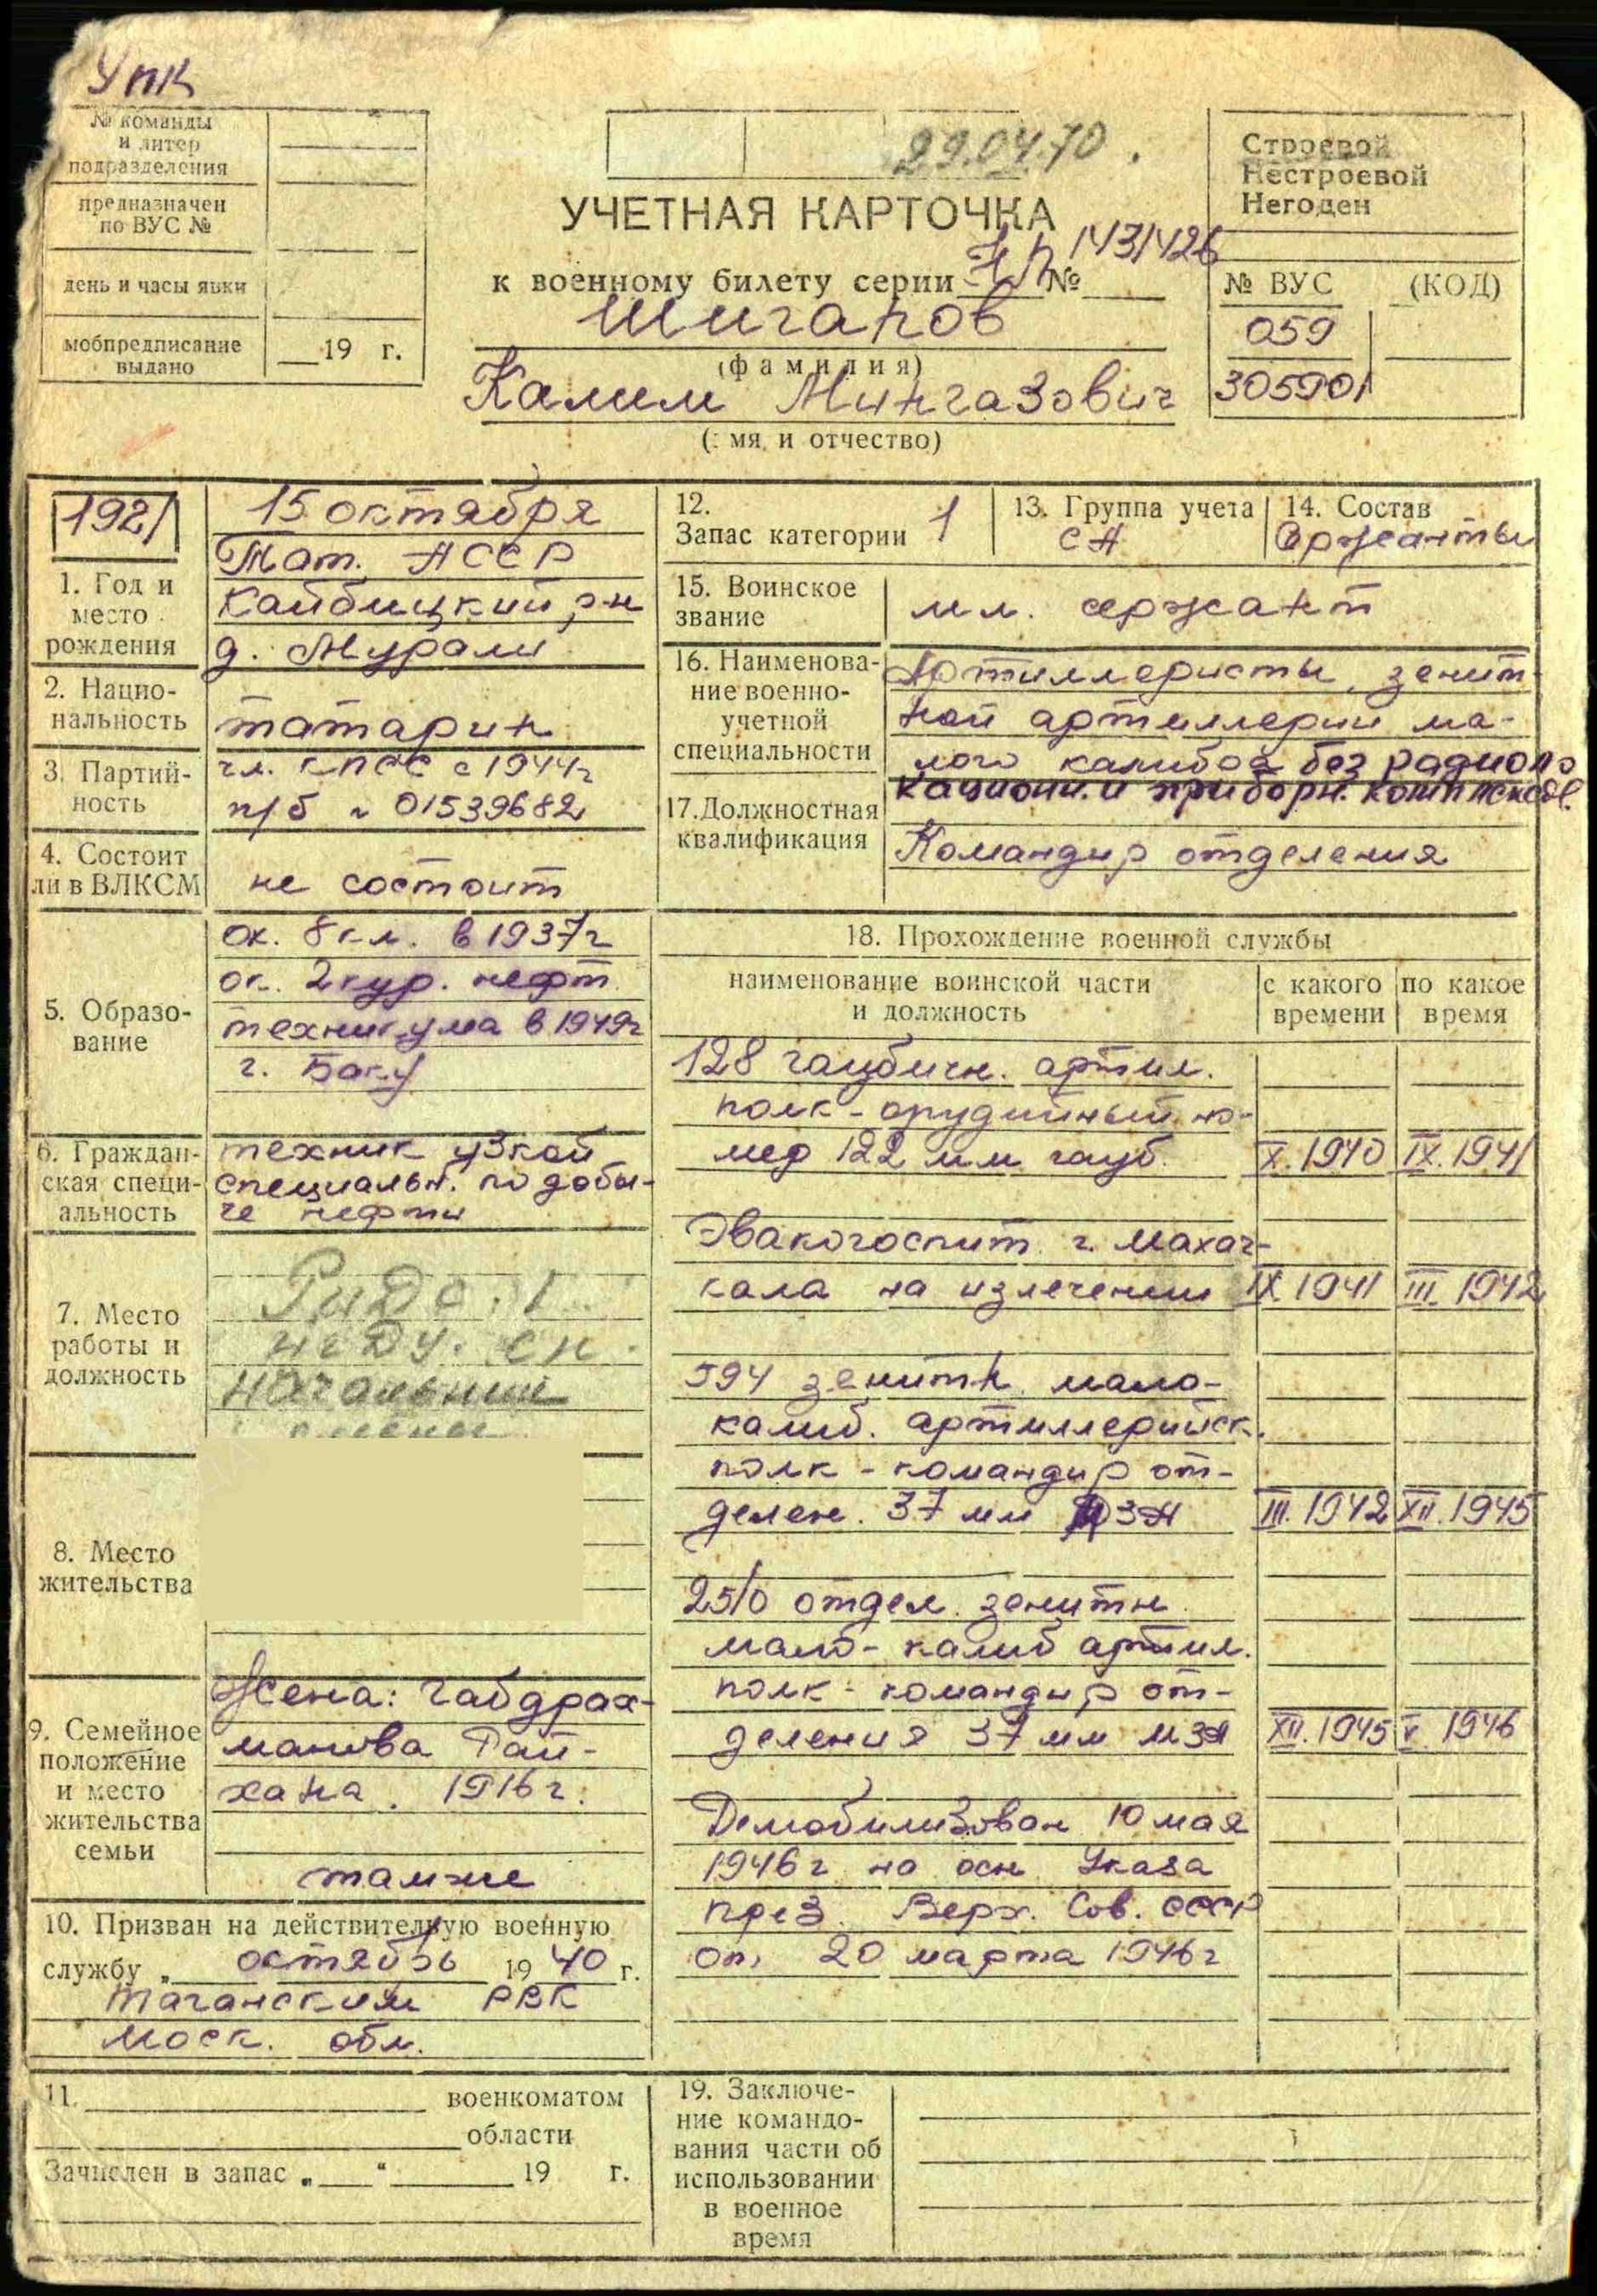 УПК
№ команды
и литер
подразделения
предназначен
по ВУС №
день и часы явки
мобпредписание
выдано
19 г.
29.04.70.
УЧЕТНАЯ КАРТОЧКА
к военному билету серии НЛ № 1431426
Шигапов
(фамилия)
Калим Мингазович
(: мя и отчество)
Строевой
Нестроевой
Негоден
№ ВУС (КОД)
059
305901
1921
1. Год и
место
рождения
15 октября
Тат. АССР
Кайбицкий р-н
д. Мурали
2. Нацио-
нальность
татарин
3. Партий-
ность
чл. КПСС с 1944г
п/б 01539682
4. Состоит
ли в ВЛКСМ
не состоит
5. Образо-
вание
ок. 8 кл. в 1937г
ок. 2 кур. нефт.
техникума в 1949г
г. Баку
6. Граждан-
ская специ-
альность
техник узкой
специальн. по добы-
че нефти
7. Место
работы и
должность
8. Место
жительства
9. Семейное
положение
и место
жительства
семьи
Жена: Габдрах-
манова Рай-
хана. 1916г.
там же
10. Призван на действительную военную
службу „ октябрь 19 40 г.
Таганским РВК
Моск. обл.
11. военкоматом
области
Зачислен в запас „ “ 19 г.
12.
Запас категории 1
13. Группа учета
СА
14. Состав
Сержанты
15. Воинское
звание
мл. сержант
16. Наименова-
ние военно-
учетной
специальности
Артиллеристы зенит-
ной артиллерии ма-
лого калибра без радиоло
кационн. и приборн. комплексов.
17. Должностная
квалификация
Командир отделения
18. Прохождение военной службы
наименование воинской части
и должность
с какого
времени
по какое
время
128 гаубичн. артил.
полк - орудийный но-
мер 122 мм гауб. X. 1940 IX. 1941
Эвакогоспит. г. Махач-
кала на излечении IX 1941 III. 1942
594 зенитн. мало-
калиб. артиллерийск.
полк - командир от-
делен. 37 мм МЗА III. 1942 XII. 1945
2510 отдел. зенитн.
мало-калиб артил.
полк - командир от-
деления 37 мм МЗА XII. 1945 V. 1946
Демобилизован 10 мая
1946г на осн Указа
през. Верх. Сов. СССР
от 20 марта 1946г
19. Заключе-
ние командо-
вания части об
использовании
в военное
время